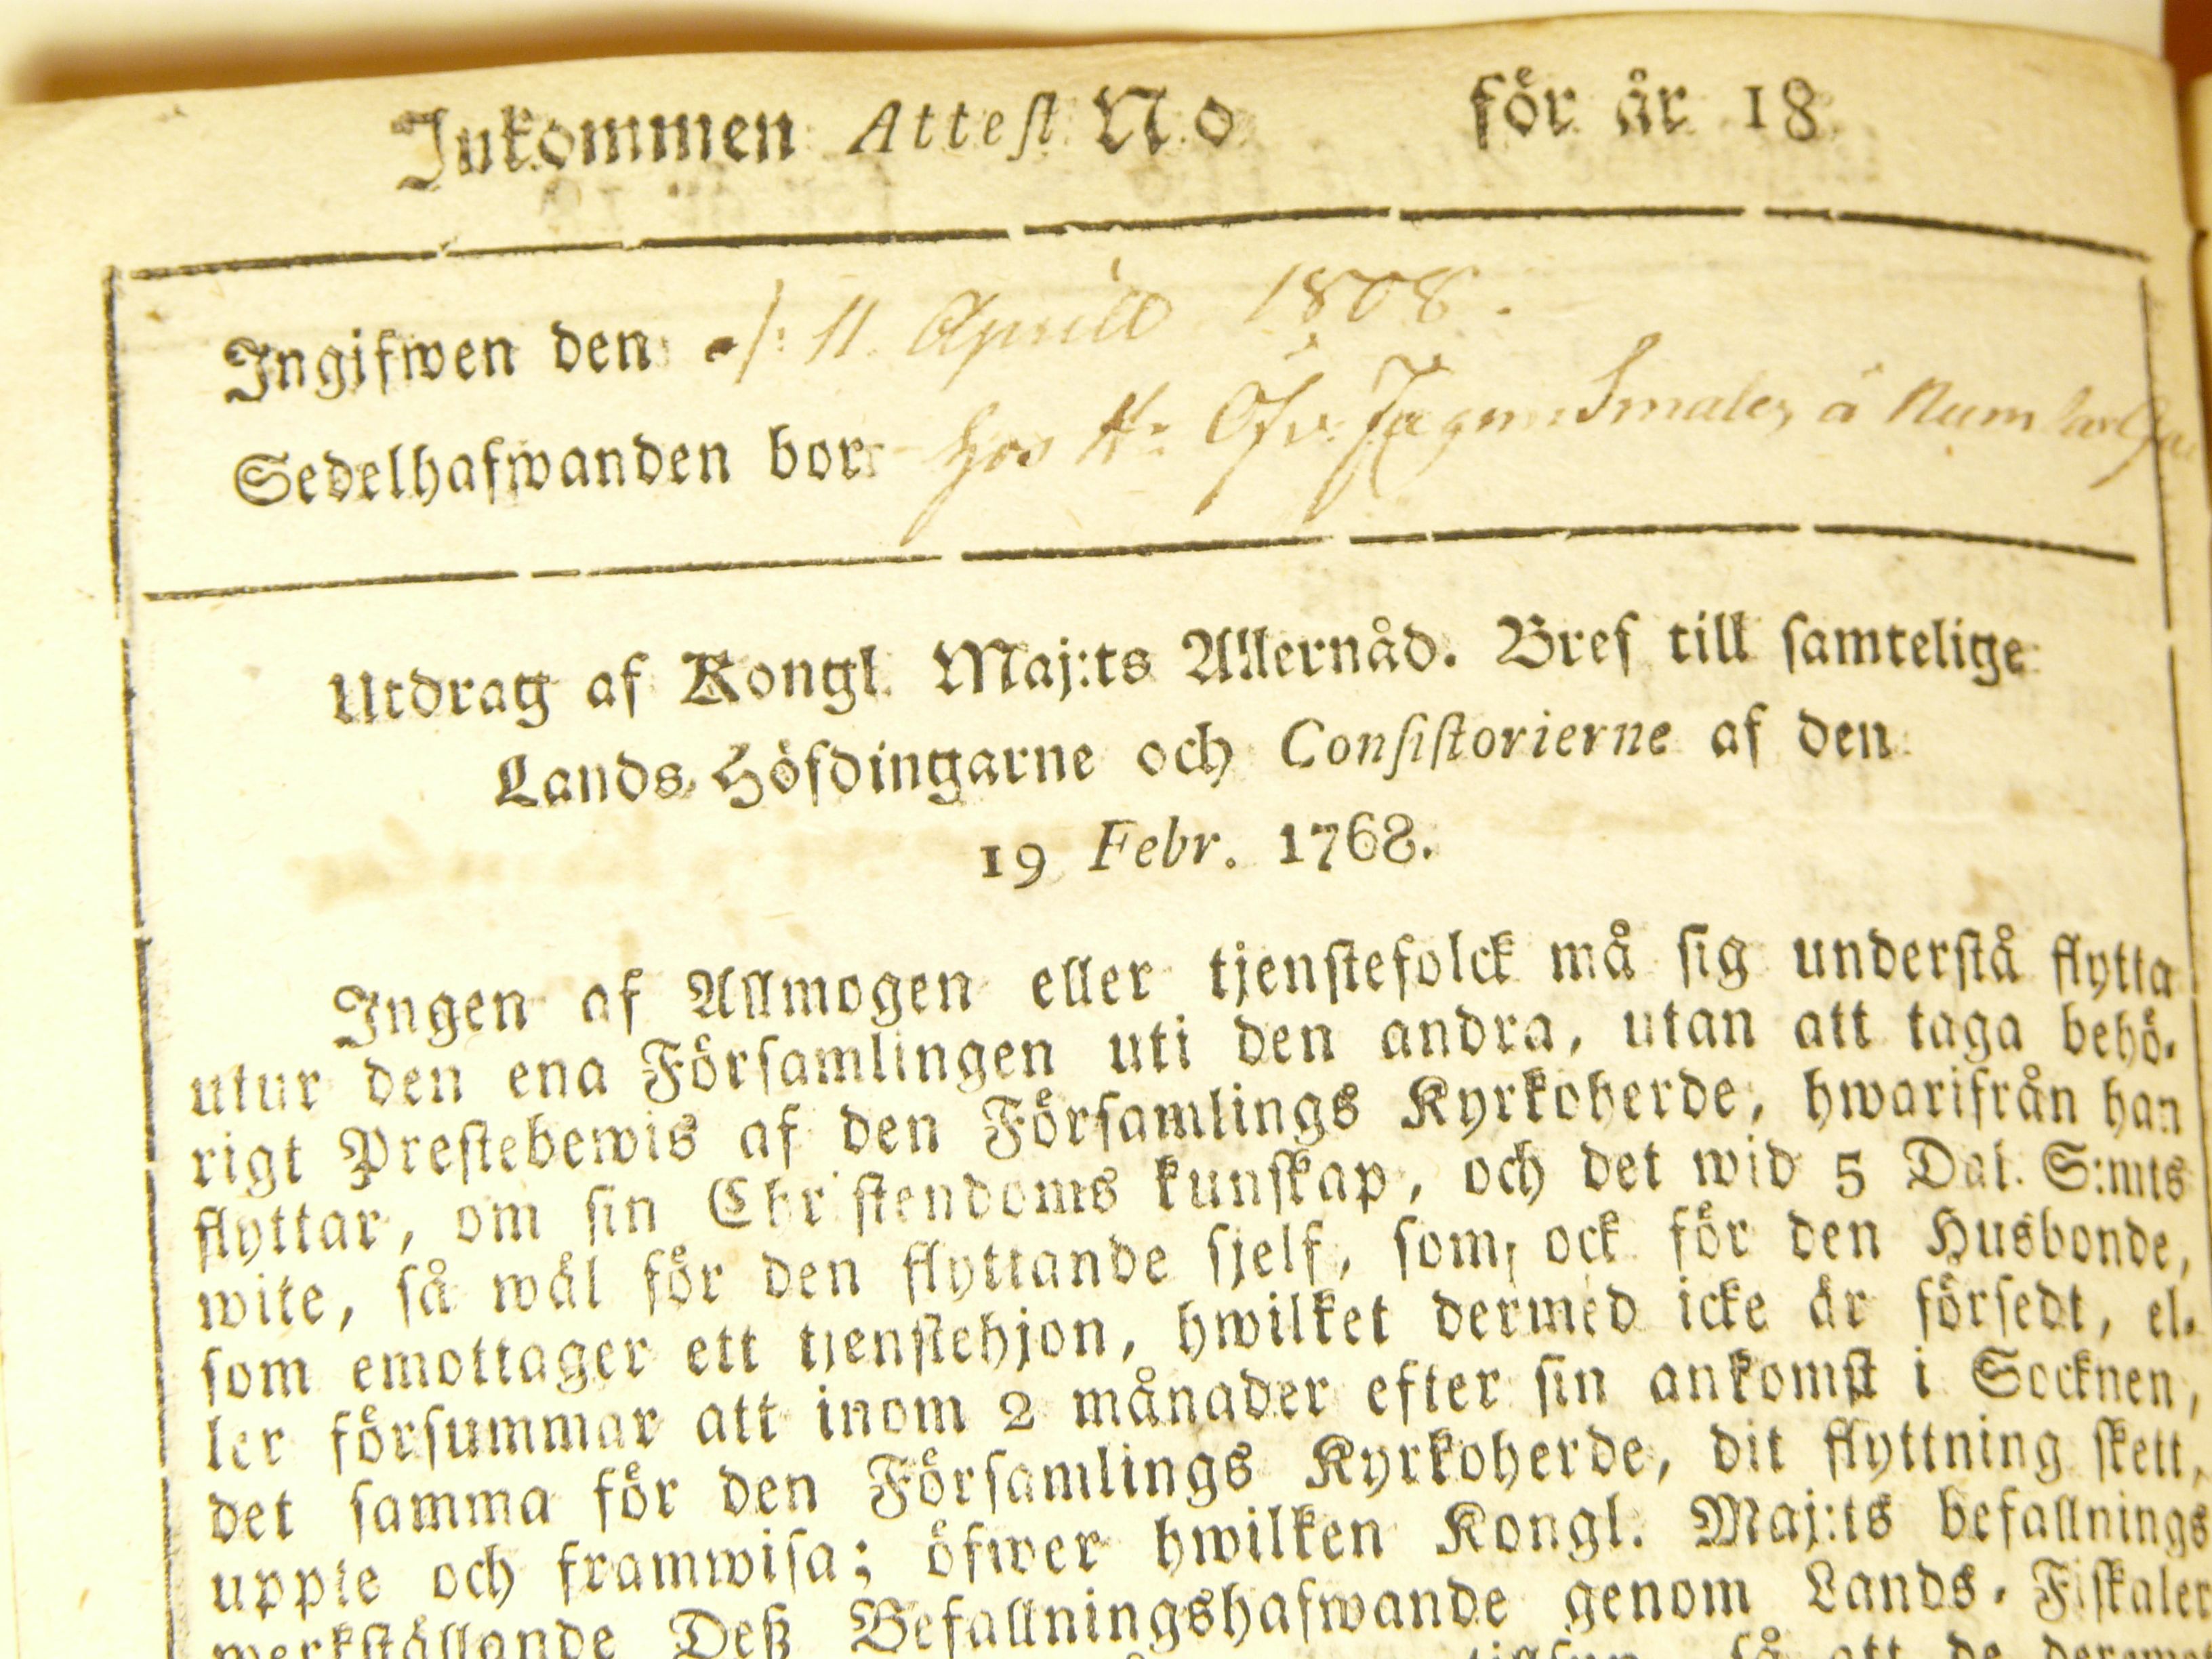 Inkommen Attest No för år 18
Ingifwen den ./: 11 Aprill 1808.
Sedelhafwanden bor hos H: Öfv. Jägm Smaler å
Utdrag af Kongl. Maj:ts Allernåd. Bref till samtelige
Lands-Höfdingarne och Consistorierne af den
19 Febr. 1768.
Ingen af Allmogen eller tjenstefolck må sig understå flytta
utur den ena Församlingen uti den andra, utan att taga behö-
rigt Prestebewis af den Församlings Kyrkoherde, hwarifrån han
flyttar, om sin Christendoms kunskap, och det wid 5 Dal. S:mts
wite, så wäl för den flyttande sjelf, som ock för den Husbonde,
som emottager ett tjenstehjon, hwilket dermed icke är försedt, el-
ler försummar att inom 2 månader efter sin ankomst i Socknen,
det samma för den Församlings Kyrkoherde, dit flyttning skett,
uppte och framwisa; öfwer hwilken Kongl. Maj:ts befallnings
werkställande Deß Befallningshafwande genom Lands-Fiskaler
så att de